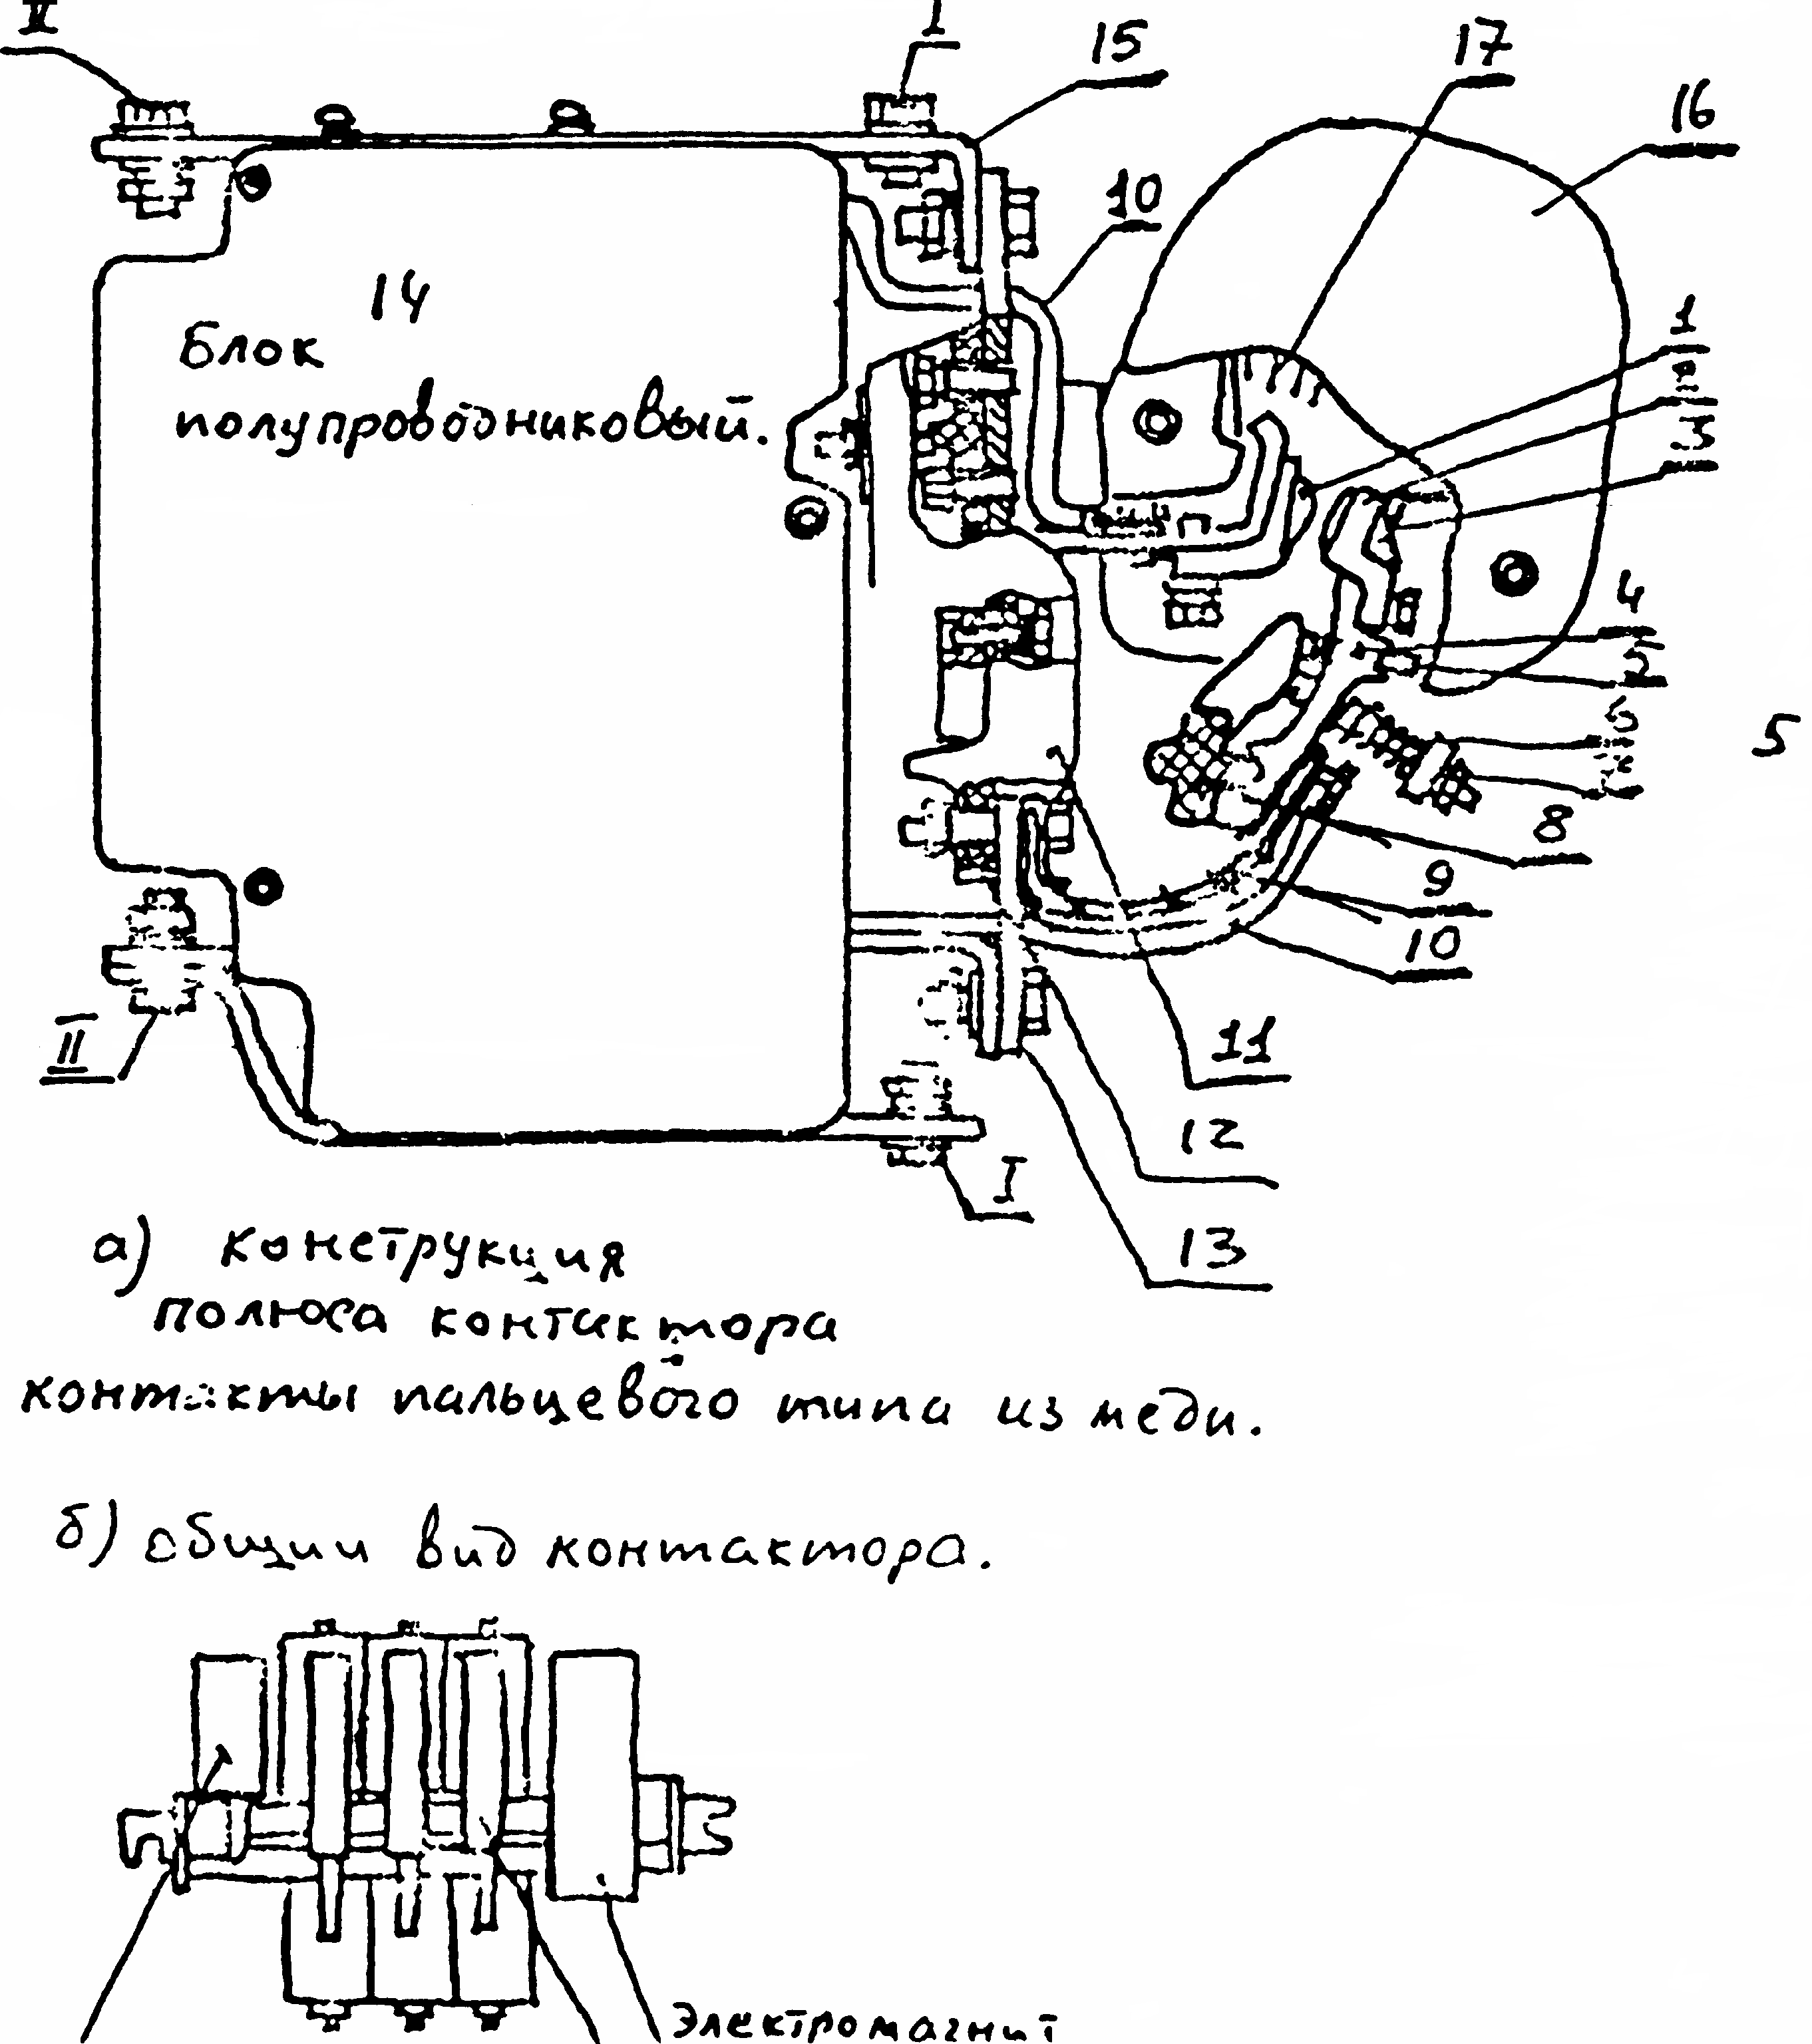 II
I
15
17
16
10
14
блок
полупроводниковый.
1
2
3
4
5
6
5
8
9
10
II
11
12
I
13
а) конструкция
полюса контактора
контакты пальцевого типа из меди.
б) общий вид контактора.
электромагнит